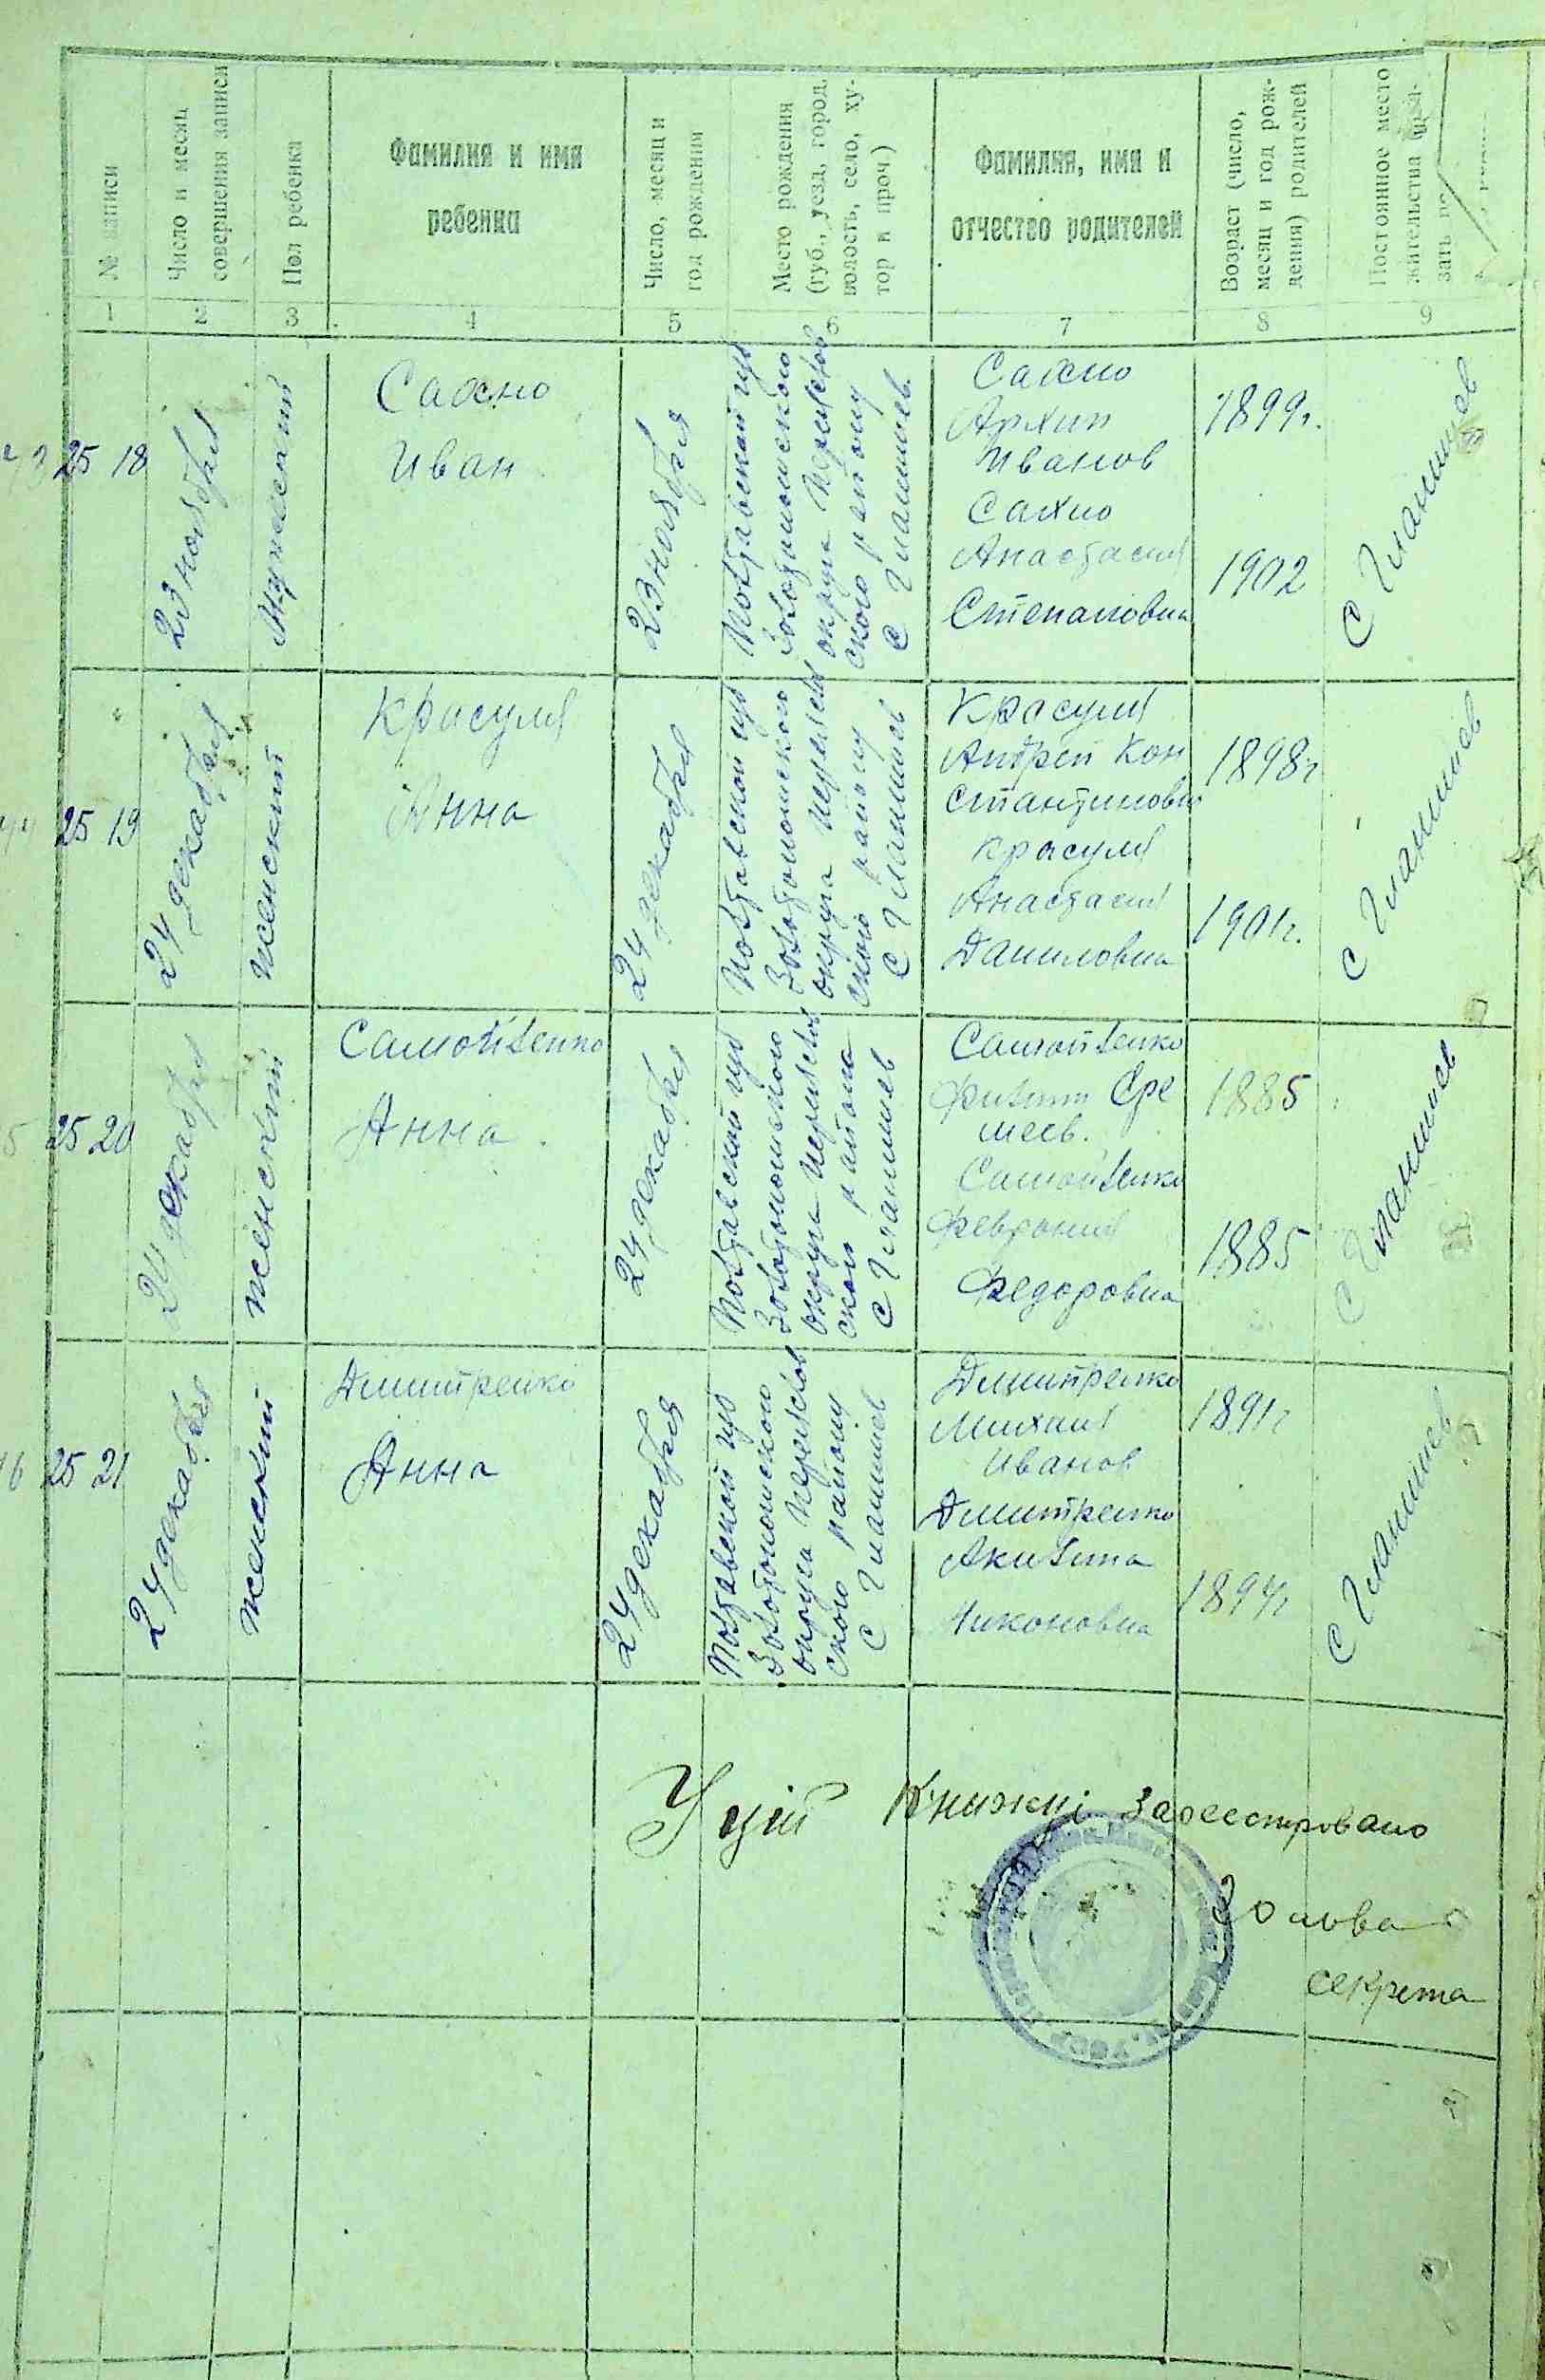 № записи
Число и месяц
совершения записи
Пол ребенка
Фамилия и имя
ребенка
Число, месяц и
год рождения
Место рождения
(губ., уезд, город,
волость, село, ху-
тор и проч.)
Фамилия, имя и
отчество родителей
Возраст (число,
месяц и год рож-
дения) родителей
Постоянное место
жительства
зать
1
2
3
4
5
6
7
8
9
25 18
23 ноября
Мужеский
Сахно
Иван
23 ноября
Полтавской губ
Золотоношского
округа
ского району
С
Сахно
Архип
Иванов
Сахно
Анастасия
Степановна
1899г.
1902
С
25 19
24 декабря
женский
Красуля
Анна
24 декабря
Полтавской губ
Золотоношского
округа
ского району
С
Красуля
Андрей Кон
стантинович
Красуля
Анастасия
Даниловна
1898г
1901г.
С
25 20
24 декабря
женский
Самойленко
Анна
24 декабря
Полтавской губ
Золотоношского
округа
ского района
С
Самойленко
Филипп Ере
меев.
Самойленко
Феврония
Федоровна
1885
1885
С
25 21
24 декабря
женский
Димитренко
Анна
24 декабря
Полтавской губ
Золотоношского
округа
ского району
С
Димитренко
Михаил
Иванов
Димитренко
Акилина
Никоновна
1891г
1894г
С
У цій Книжці Зареестровано
Голова
секрета